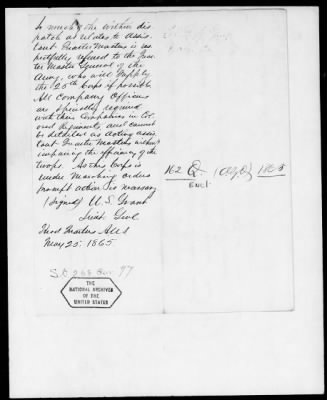 So much of the within dis
patch as relates to Assis
tant Quarter Masters is res
pectfully referred to the Quar
ter Master General of the
Army, who will supply
the 25th Corps if possible
All Company Officers
are specially required
with their Companies in Col
ored Regiments, and cannot
be detailed as acting assis
tant Quarter Masters without
impairing the efficiency of the
troops. As this Corps is
under Marching orders
prompt action is necessary
(Signed) U. S. Grant
Lieut Genl.
Head Quarters A U S
May 20. 1865.
162 Q. 1865
Encl.
THE
NATIONAL ARCHIVES
OF THE
UNITED STATES